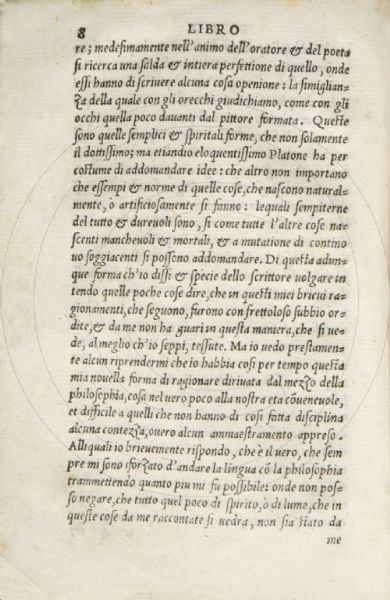 8 LIBRO
re; medesimamente nell'animo dell'oratore & del poeta
si ricerca una salda & intiera perfettione di quello, onde
essi hanno di scriuere alcuna cosa openione: la simiglian-
za della quale con gli orecchi giudichiano, come con gli
occhi quella poco dauanti dal pittore formata. Queste
sono quelle semplici & spiritali forme, che non solamente
il dottissimo; ma etiandio eloquentissimo Platone ha per
costume di addomandare idee: che altro non importano
che essempi & norme di quelle cose, che nascono natural-
mente, ò artificiosamente si fanno: lequali sempiterne
del tutto & dureuoli sono, si come tutte l'altre cose na-
scenti mancheuoli & mortali, & a mutatione di contino
uo soggiacenti si possono addomandare. Di questa adun-
que forma ch'io dissi & spècie dello scrittore volgare in
tendo quelle poche cose dire, che in questi miei brieui ra-
gionamenti, che seguono, furono con frettoloso subbio or-
dite, & da me non ha guari in questa maniera, che si ve-
de, al meglio ch'io seppi, tessute. Ma io uedo prestamen-
te alcun riprendermi che io habbia cosi per tempo questa
mia nouella forma di ragionare diriuata dal mezzo della
philosophia, cosa nel uero poco alla nostra eta cōueneuole,
et difficile a quelli che non hanno di cosi fatta disciplina
alcuna contezza, ouero alcun ammaestramento appreso.
Alli quali io brieuemente rispondo, che è il uero, che sem
pre mi sono sforzato d'andare la lingua cō la philosophia
trammettendo quanto piu mi fu possibile: onde non pos-
so negare, che tutto quel poco di spirito, ò di lume, che in
queste cose da me raccontate si vedra, non sia stato da
me